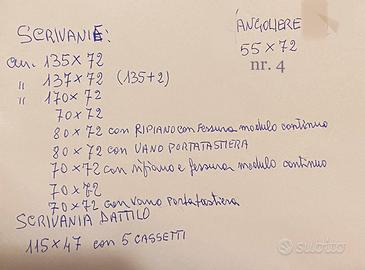 SCRIVANIE:
cm. 135 x 72
" 137 x 72 (135+2)
" 170 x 72
70 x 72
80 x 72 con RIPIANO con Fessura modulo continuo
80 x 72 con VANO PORTATASTIERA
70 x 72 con ripiano e fessura modulo continuo
70 x 72
70 x 72 con vano portatastiera
SCRIVANIA DATTILO
115 x 47 con 5 CASSETTI
ANGOLIERE
55 x 72
nr. 4
subito